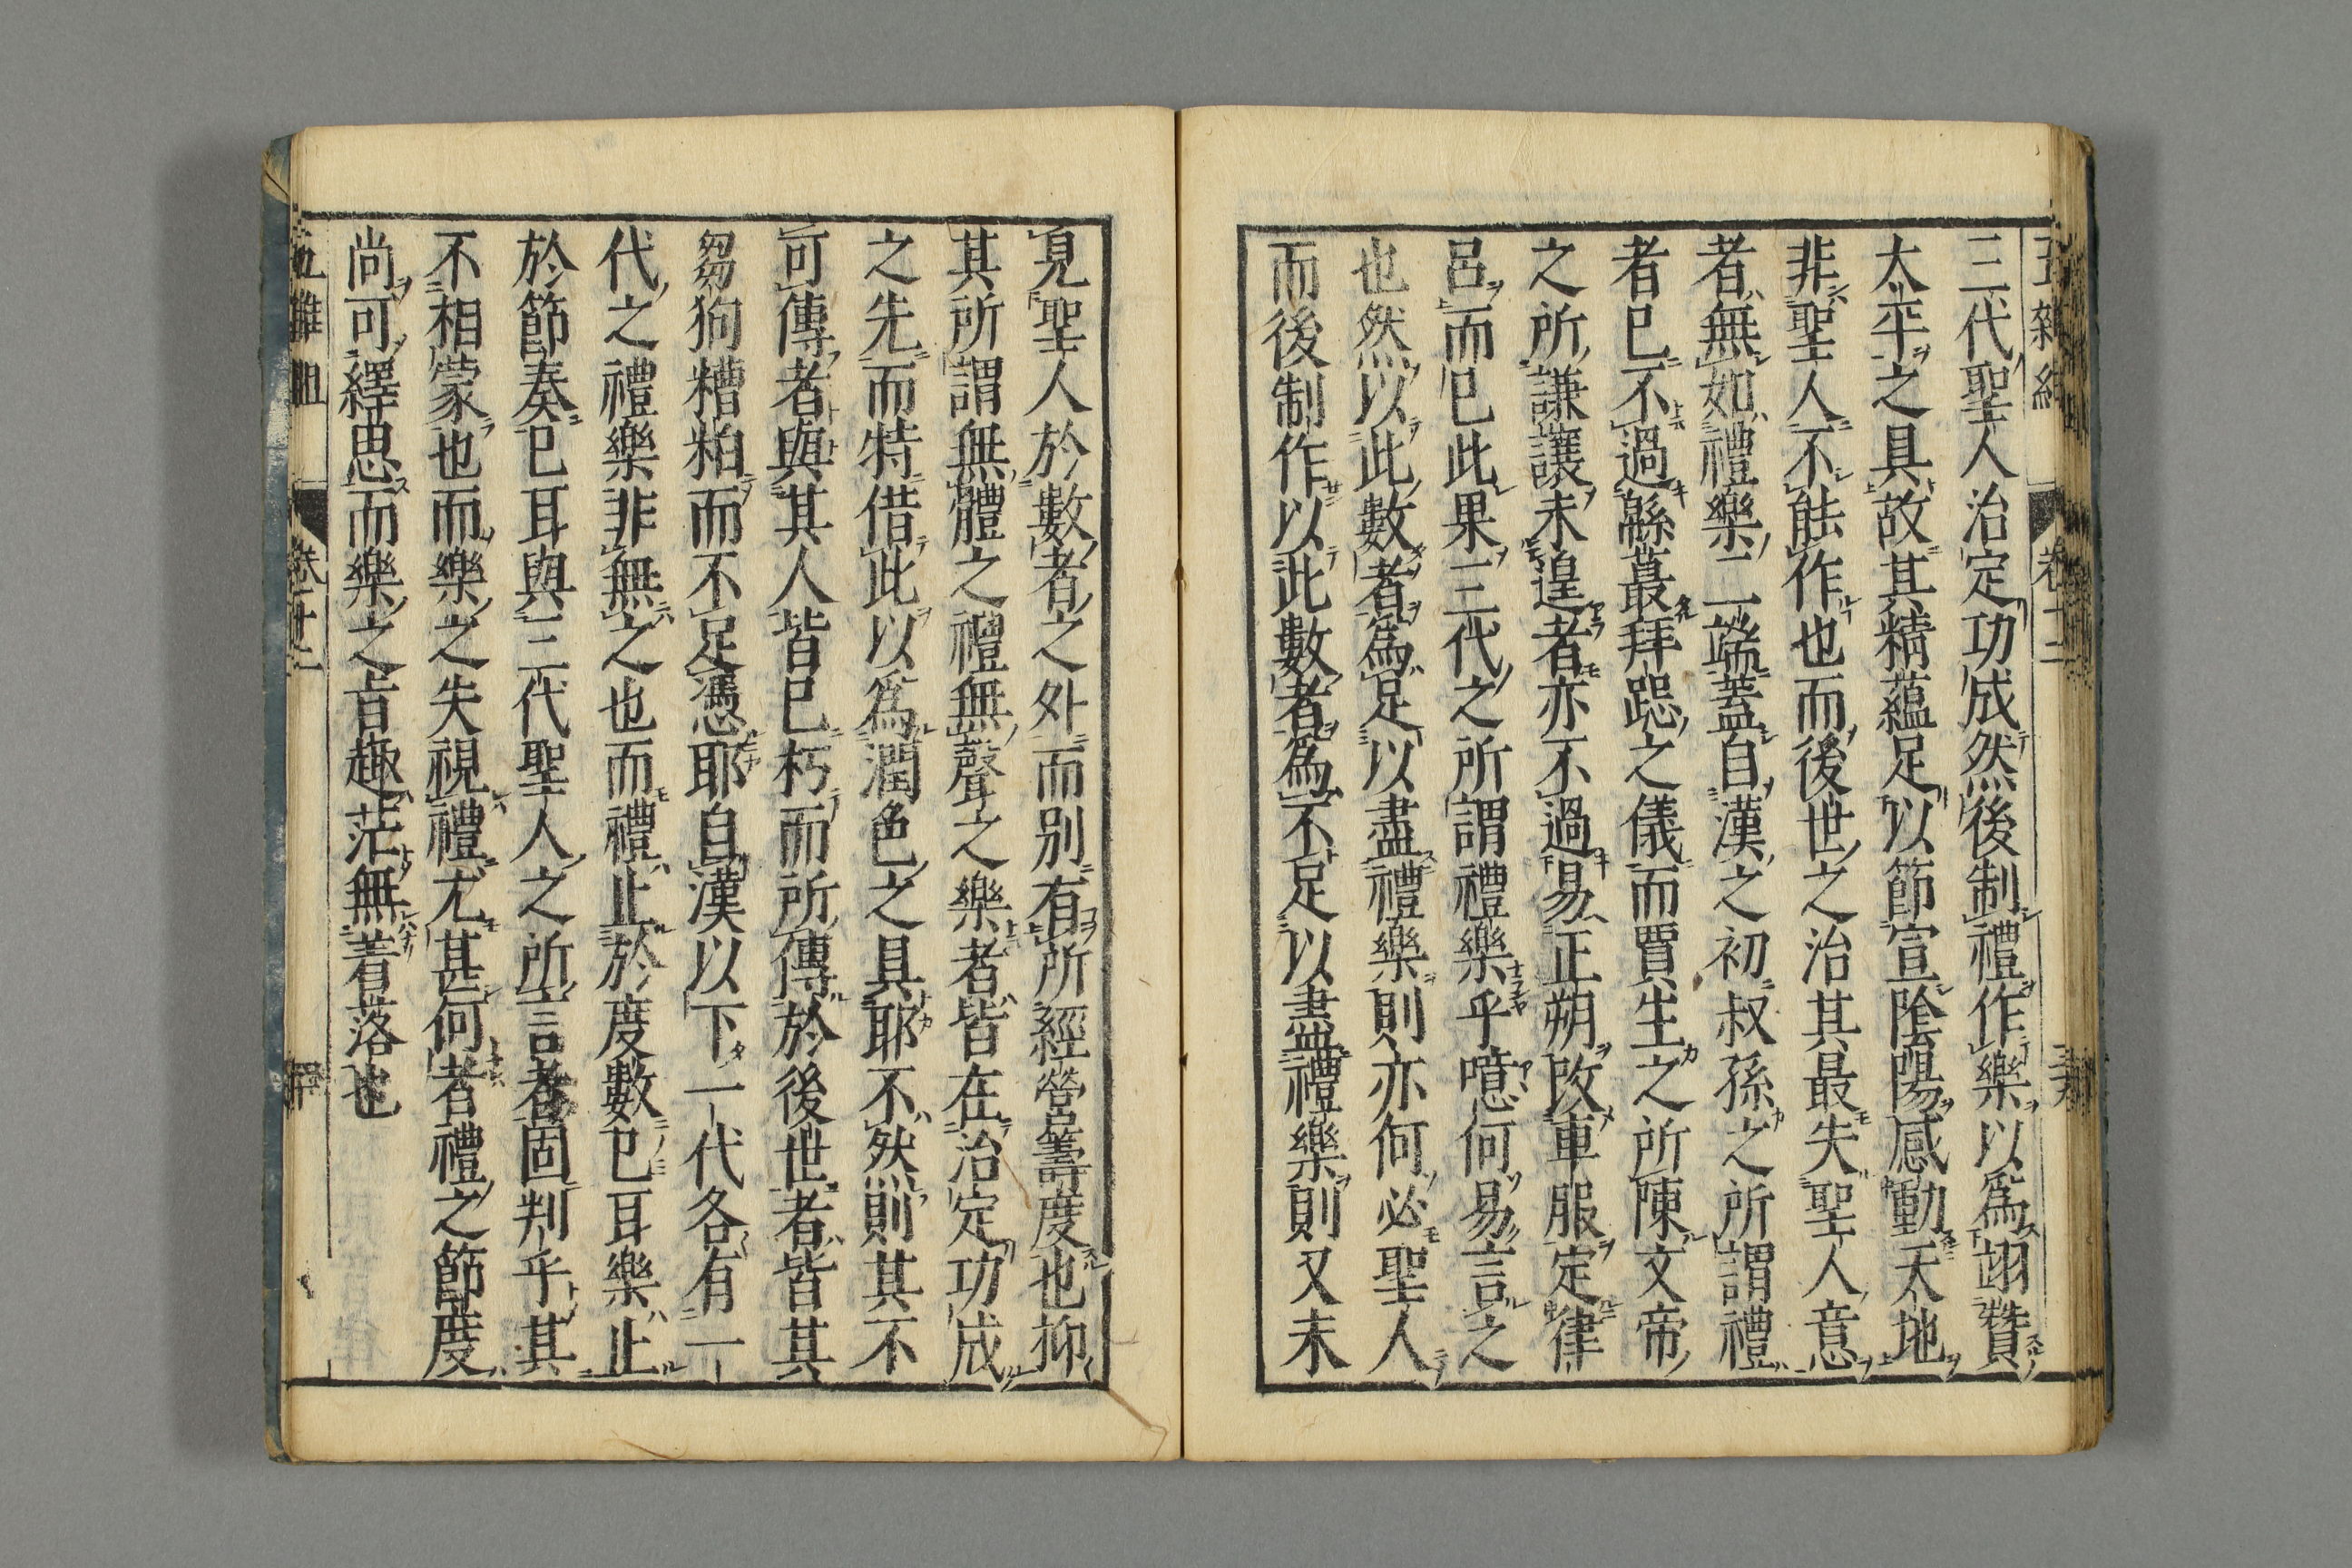 三代聖人治定功成然後制禮作樂以為翊贊
太平之具故其精蘊足以節宣陰陽感動天地
非聖人不能作也而後世之治其最失聖人意
者無如禮樂二端蓋自漢之初叔孫之所謂禮
者已不過緜蕞拜跽之儀而賈生之所陳文帝
之所謙讓未遑者亦不過易正朔改車服定律
呂而已此果三代之所謂禮樂乎噫何易言之
也然以此數者為足以盡禮樂則亦何必聖人
而後制作以此數者為不足以盡禮樂則又未
見聖人於數者之外而別有所經營籌度也抑
其所謂無體之禮無聲之樂者皆在治定功成
之先而特借此以為潤色之具耶不然則其不
可傳者與其人皆已朽而所傳於後世者皆其
芻狗糟粕而不足憑耶自漢以下一代各有一
代之禮樂非無之也而禮止於度數已耳樂止
於節奏已耳與三代聖人之所言者固判乎其
不相蒙也而樂之失視禮尤甚何者禮之節度
尚可繹思而樂之旨趣茫無着落也
五雜俎 卷十二